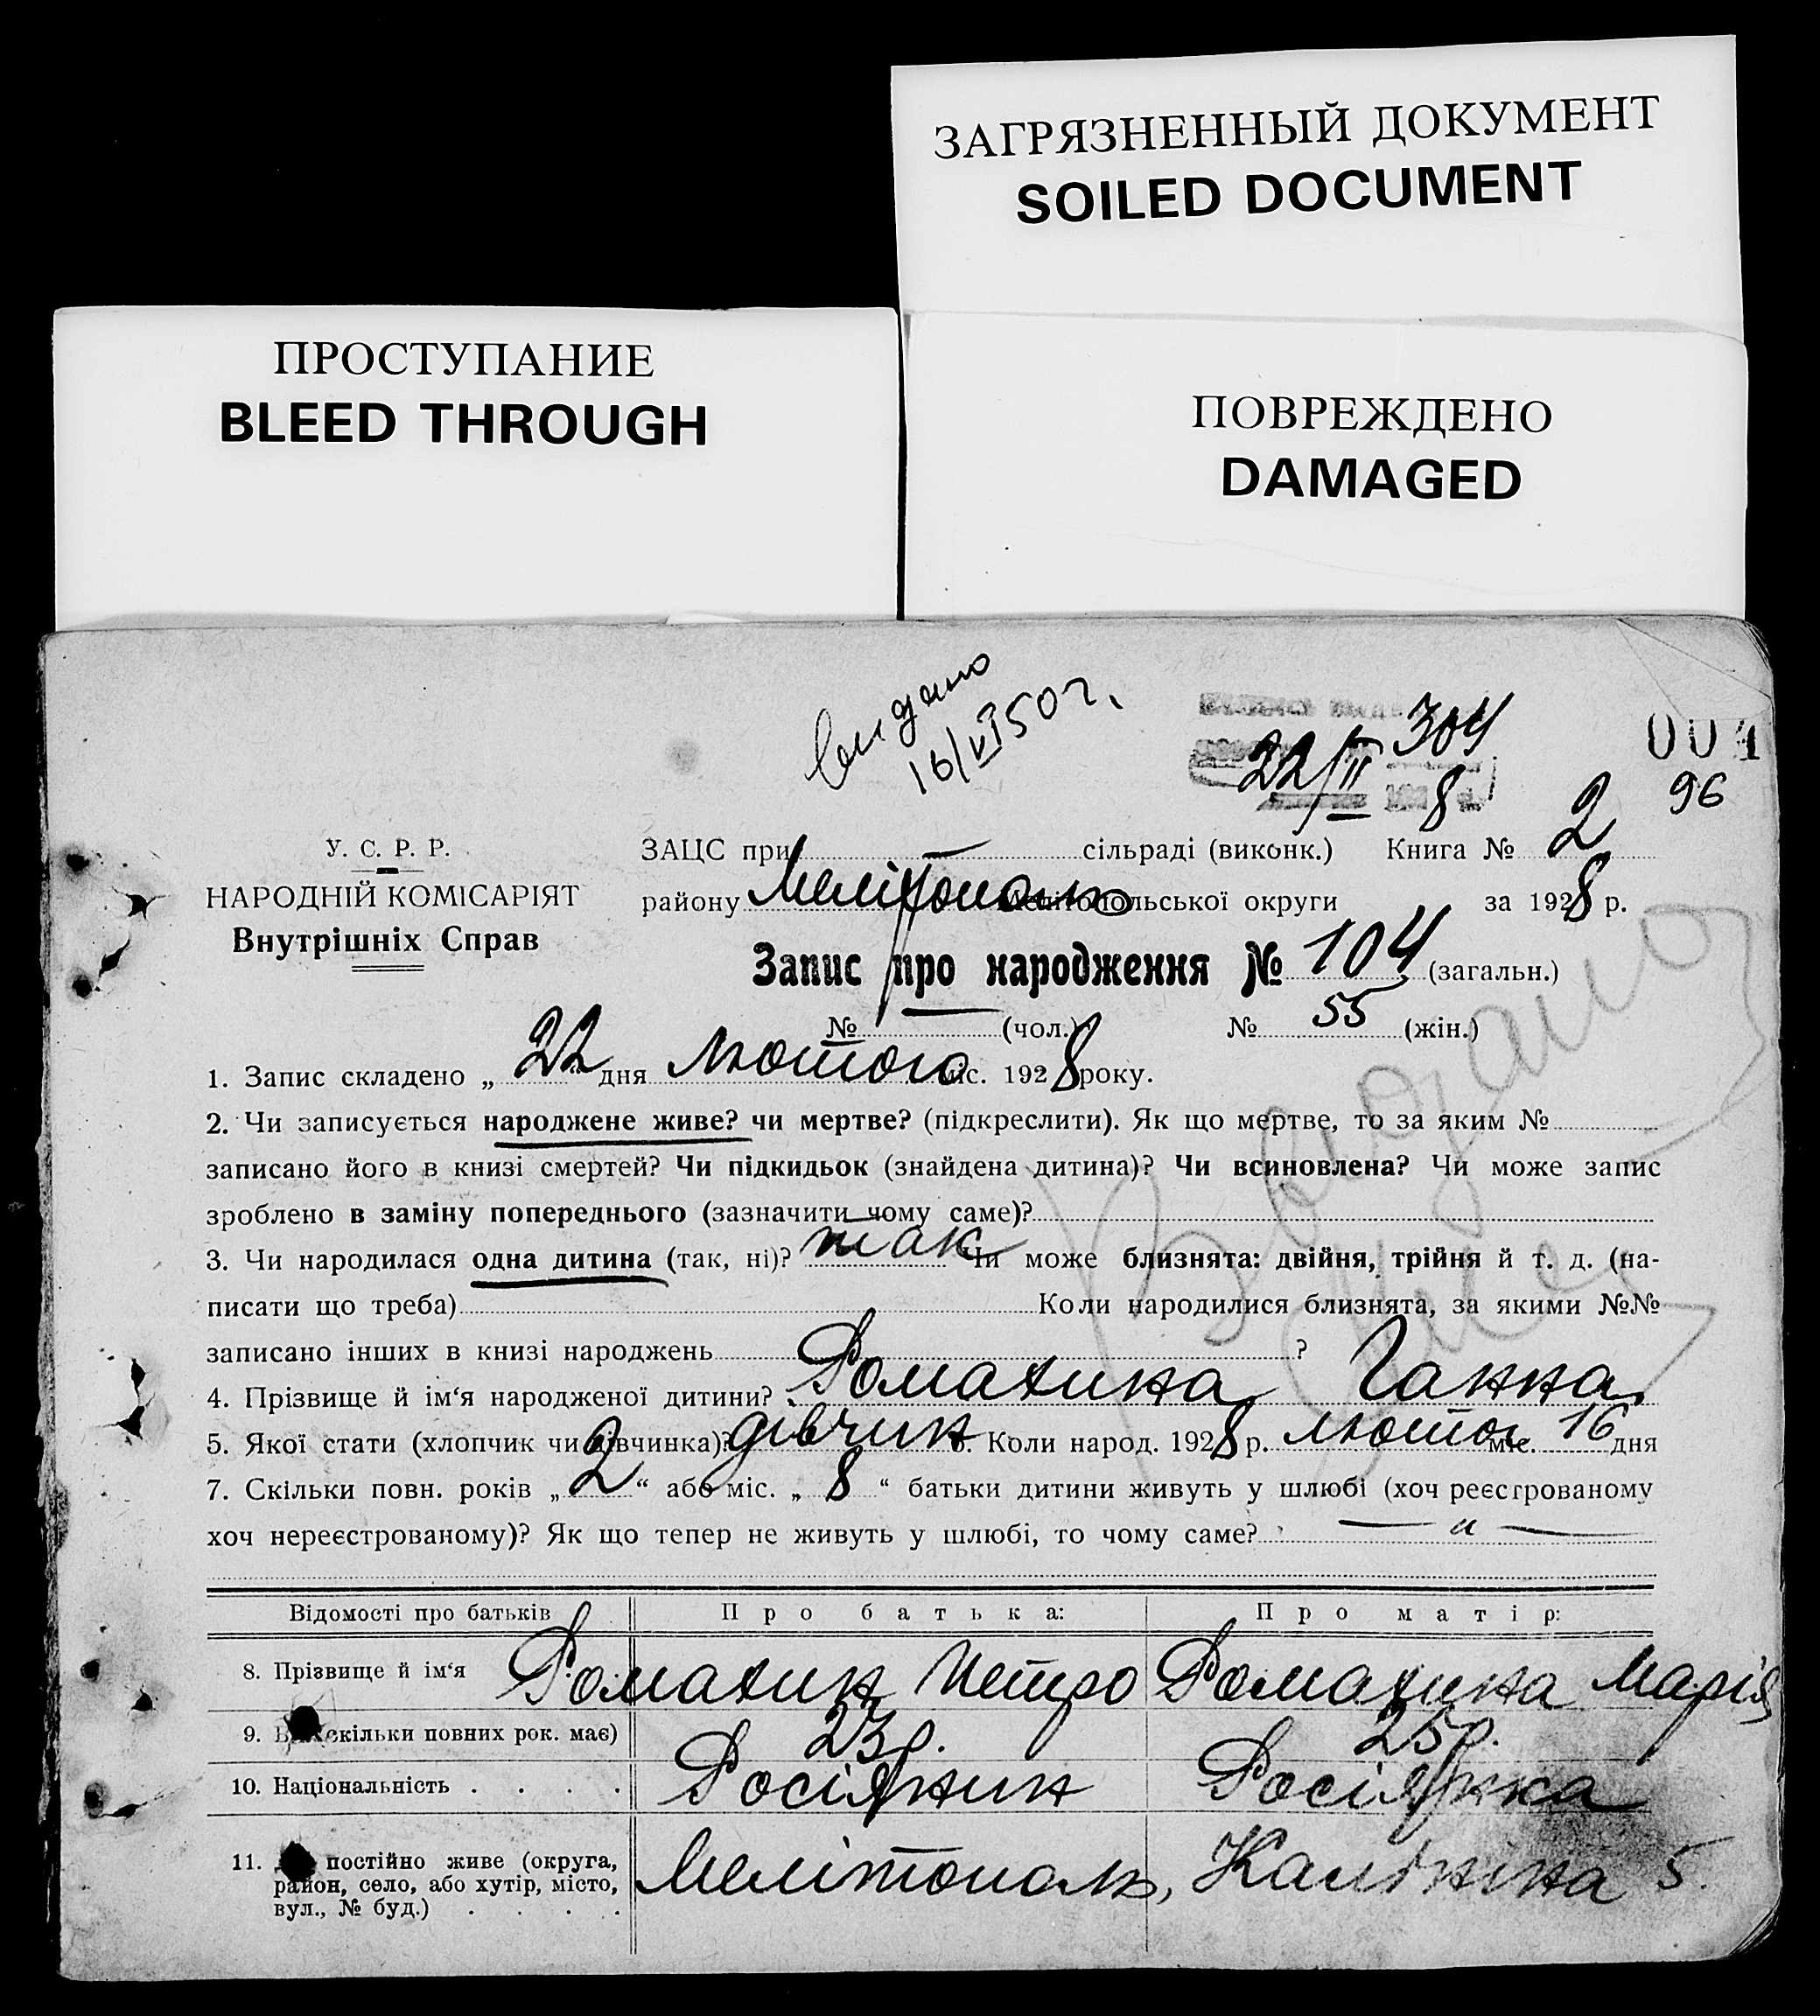 ЗАГРЯЗНЕННЫЙ ДОКУМЕНТ
SOILED DOCUMENT
ПРОСТУПАНИЕ
BLEED THROUGH
ПОВРЕЖДЕНО
DAMAGED
видано
16/VI 50 г.
304
22/II 8
004
96
У. С. Р. Р.
НАРОДНІЙ КОМІСАРІЯТ
Внутрішніх Справ
ЗАЦС при — сільраді (виконк.) Книга № 2
району Мелітополь Мелітопольської округи за 1928 р.
Запис про народження № 104 (загальн.)
№ — (чол.) № 55 (жін.)
1. Запис складено „ 22 " дня Лютого міс. 1928 року.
2. Чи записується народжене живе? чи мертве? (підкреслити). Як що мертве, то за яким №
записано його в книзі смертей? Чи підкидьок (знайдена дитина)? Чи всиновлена? Чи може запис
зроблено в заміну попереднього (зазначити чому саме)?
3. Чи народилася одна дитина (так, ні)? так Чи може близнята: двійня, трійня й т. д. (на-
писати що треба) Коли народилися близнята, за якими №№
записано інших в книзі народжень ?
4. Прізвище й ім‘я народженої дитини? Ромахина Ганна
5. Якої стати (хлопчик чи дівчинка)? дівчин 6. Коли народ. 1928 р. Лютог міс. 16 дня
7. Скільки повн. років „ 2 “ або міс. „ 8 “ батьки дитини живуть у шлюбі (хоч реєстрованому
хоч нереєстрованому)? Як що тепер не живуть у шлюбі, то чому саме? — „ —
Відомості про батьків Про батька: Про матір:
8. Прізвище й ім‘я Ромахин Петро Ромахина Марія
9. скільки повних рок. має) 23 р. 25 р.
10. Національність . . . . Росіянин Росіянка
11. постійно живе (округа,
район, село, або хутір, місто,
вул., № буд.) . . . .
Мелітополь, Калініна 5.